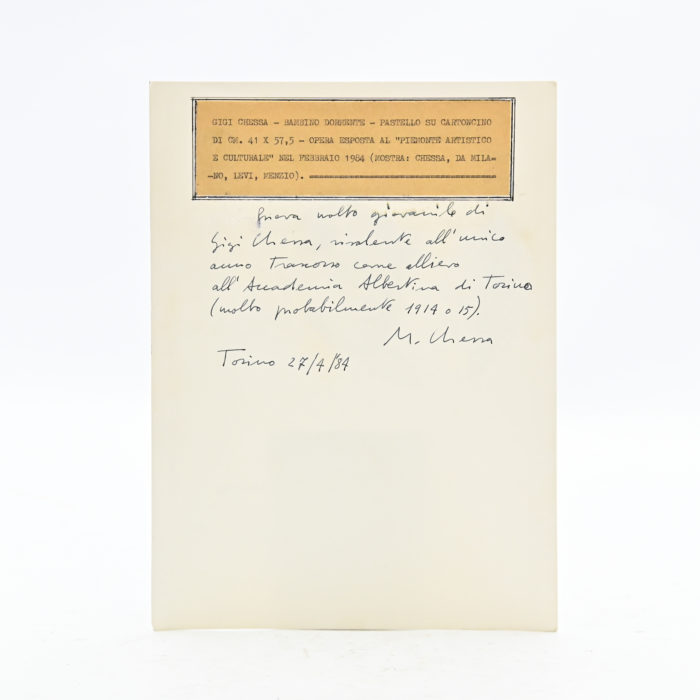 GIGI CHESSA - BAMBINO DORMENTE - PASTELLO SU CARTONCINO
DI CM. 41 X 57,5 - OPERA ESPOSTA AL "PIEMONTE ARTISTICO
E CULTURALE" NEL FEBBRAIO 1984 (MOSTRA: CHESSA, DA MILA=
=NO, LEVI, MENZIO).
molto giovanile di
Gigi Chessa, risalente all'unico
anno trascorso come allievo
all'Accademia Albertina di Torino
(molto probabilmente 1914 o 15).
M. Chessa
Torino 27/4/84